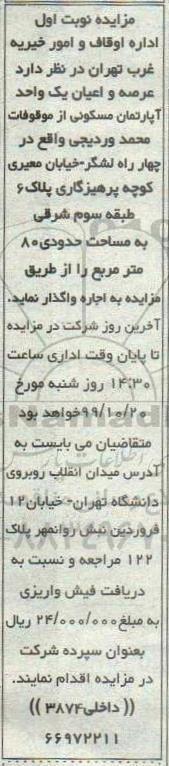 مزایده نوبت اول
اداره اوقاف و امور خیریه
غرب تهران در نظر دارد
عرصه و اعیان یک واحد
آپارتمان مسکونی از موقوفات
محمد وردیجی واقع در
چهار راه لشگر-خیابان معیری
کوچه پرهیزگاری پلاک۶
طبقه سوم شرقی
به مساحت حدودی۸۰
متر مربع را از طریق
مزایده به اجاره واگذار نماید.
آخرین روز شرکت در مزایده
تا پایان وقت اداری ساعت
۱۴:۳۰ روز شنبه مورخ
۹۹/۱۰/۲۰خواهد بود
متقاضیان می بایست به
آدرس میدان انقلاب روبروی
دانشگاه تهران- خیابان۱۲
فروردین نبش روانمهر پلاک
۱۲۲ مراجعه و نسبت به
دریافت فیش واریزی
به مبلغ۲۴/۰۰۰/۰۰۰ ریال
بعنوان سپرده شرکت
در مزایده اقدام نمایند.
(( داخلی۳۸۷۴ ))
۶۶۹۷۲۲۱۱